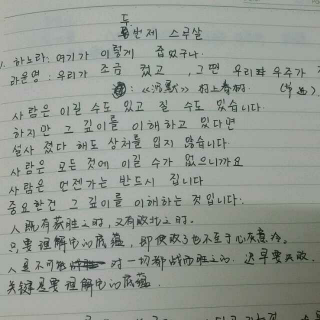 두
번째 스무살
1. 하노라: 여기가 이렇게 좁았구나.
과윤영: 우리가 조금 컸고, 그땐 우리와 우주가
: 《沉默》 村上春树.
사람은 이길 수도 있고 질 수도 있습니다
하지만 그 깊이를 이해하고 있다면
설사 졌다 해도 상처를 입지 않습니다
사람은 모든 것에 이길 수가 없으니까요
사람은 언젠가는 반드시 집니다
중요한건 그 깊이를 이해하는 것입니다.
人既有获胜之时，又有败北之时。
只要理解它的底蕴，即使败了也不至于心灰意冷。
人是不可能对一切都战而胜之的. 迟早要失败.
关键是要理解它的底蕴.